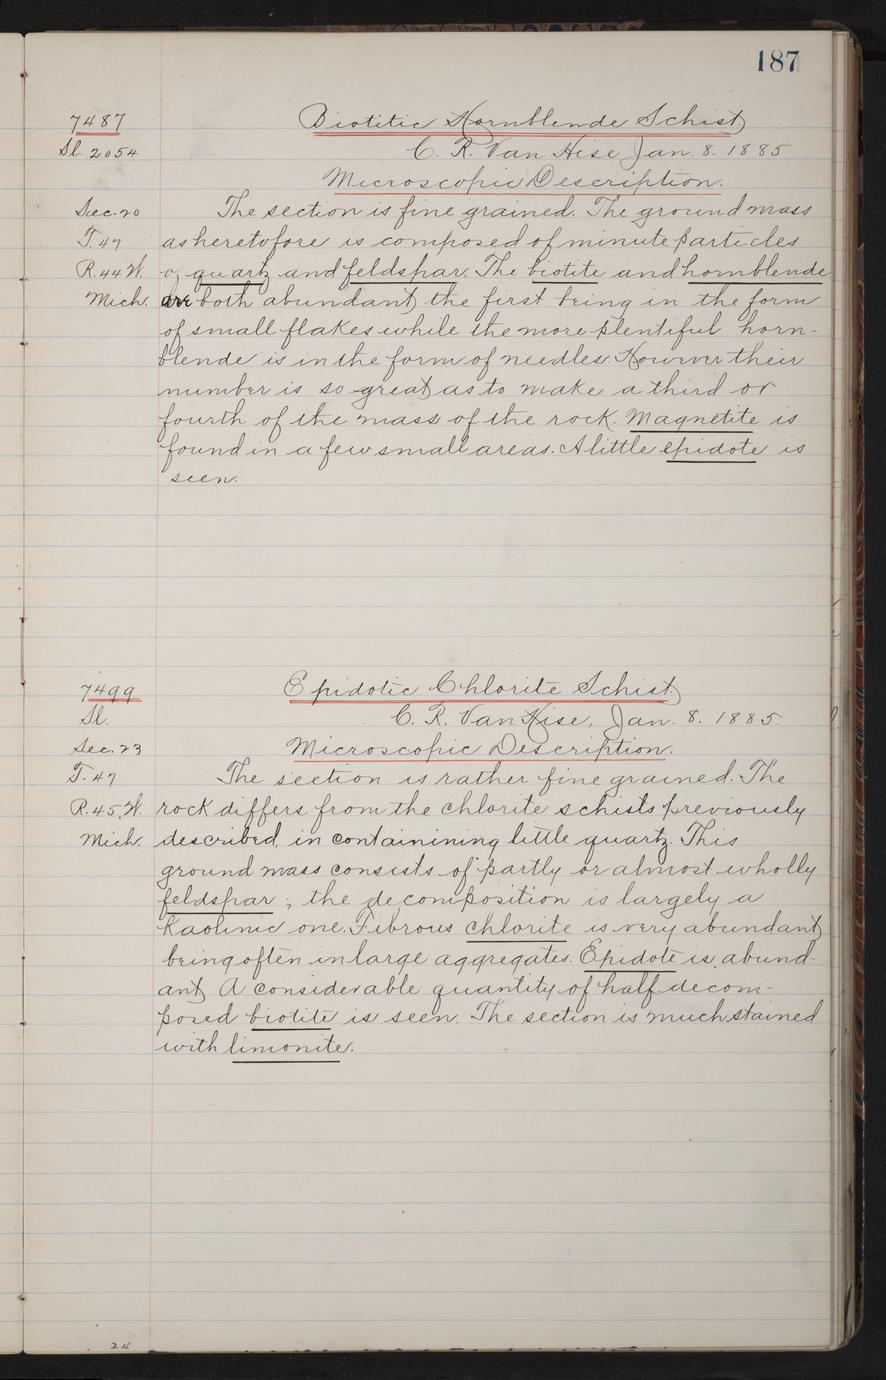 187
7487 Biotitic Hornblende Schist
Sl. 2054 C. R. Van Hise Jan. 8. 1885
Microscopic Description.
Sec. 20 The section is fine grained. The ground mass
T. 47 as heretofore is composed of minute particles
R. 44 W. of quartz and feldspar. The biotite and hornblende
Mich. are both abundant the first being in the form
of small flakes while the more plentiful horn-
blende is in the form of needles. However their
number is so great as to make a third or
fourth of the mass of the rock. Magnetite is
found in a few small areas. A little epidote is
seen.
7499 Epidotic Chlorite Schist
Sl. C. R. Van Hise, Jan. 8. 1885.
Sec. 23 Microscopic Description.
T. 47 The section is rather fine grained. The
R. 45. W. rock differs from the chlorite schists previously
Mich. described, in containining little quartz. This
ground mass consists of partly or almost wholly
feldspar; the decomposition is largely a
Kaolinic one. Fibrous chlorite is very abundant
being often in large aggregates. Epidote is abund-
ant. A considerable quantity of half decom-
posed biotite is seen. The section is much stained
with limonite.
24